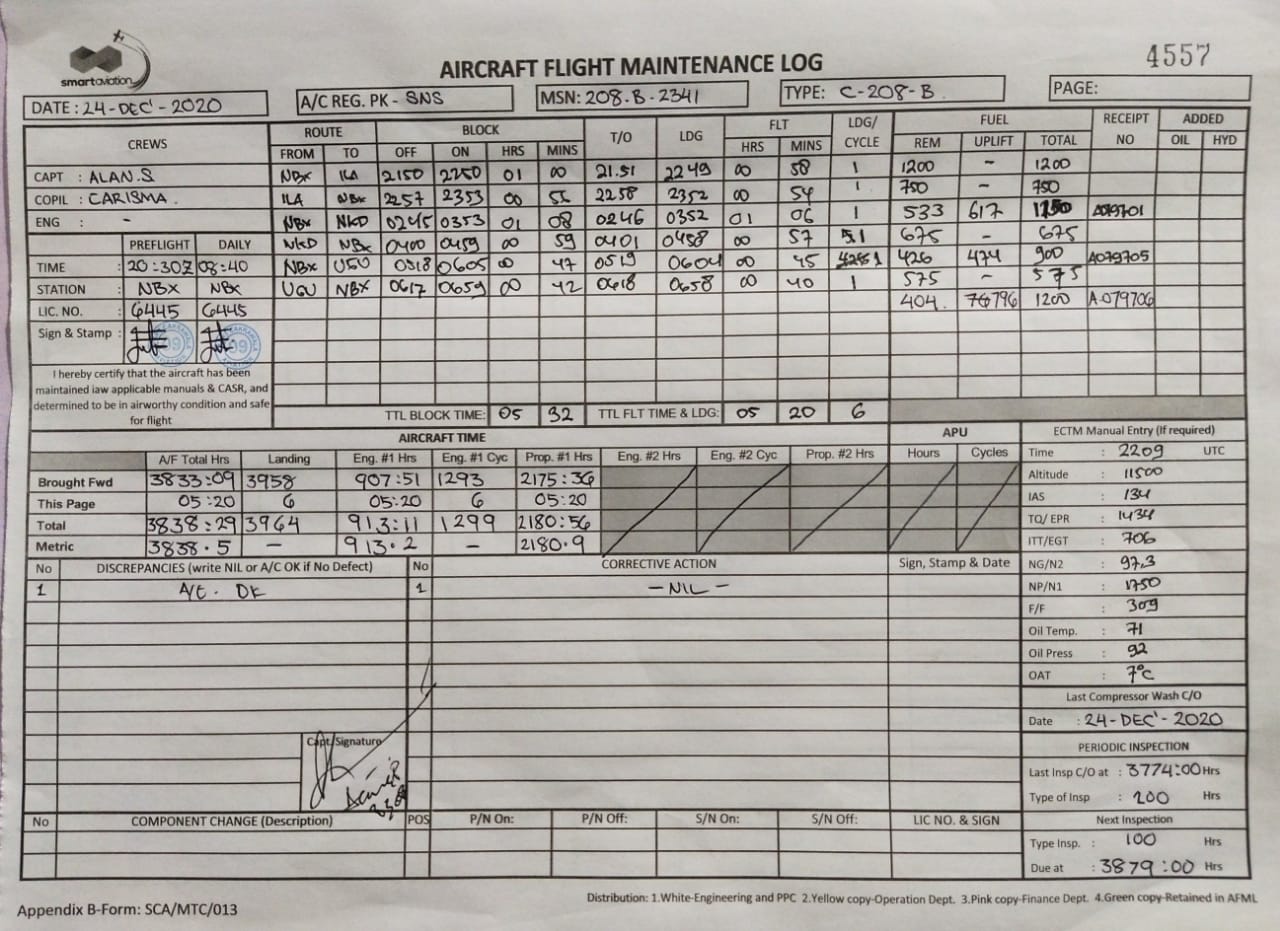 smartaviation
AIRCRAFT FLIGHT MAINTENANCE LOG
4557
DATE : 24-DEC'-2020 A/C REG. PK - SNS MSN: 208.B.2341 TYPE: C-208-B PAGE:
CREWS ROUTE BLOCK T/O LDG FLT LDG/ CYCLE FUEL RECEIPT NO ADDED
FROM TO OFF ON HRS MINS HRS MINS REM UPLIFT TOTAL OIL HYD
CAPT : ALAN.S NBX ILA 2150 2250 01 00 21.51 2249 00 58 1 1200 - 1200
COPIL : CARISMA. ILA NBX 2257 2353 00 2258 2352 00 54 1 750 - 750
ENG : - NBX NKD 0245 0353 01 08 0246 0352 01 06 1 533 617 A079701
NKD NBX 0400 0459 00 59 0401 0458 00 57 1 675 - 675
PREFLIGHT DAILY
TIME : 20:30Z 08:40 NBX 0518 0605 00 47 0519 0604 00 45 1 426 474 900 A079705
STATION : NBX NBX UGU NBX 0617 0659 00 42 0618 0658 00 40 1 575 - 575
LIC. NO. : 6445 6445 404. 796 1200 A.079706
Sign & Stamp :
I hereby certify that the aircraft has been
maintained iaw applicable manuals & CASR, and
determined to be in airworthy condition and safe
for flight
TTL BLOCK TIME: 05 32 TTL FLT TIME & LDG: 05 20 6
AIRCRAFT TIME APU ECTM Manual Entry (If required)
A/F Total Hrs Landing Eng. #1 Hrs Eng. #1 Cyc Prop. #1 Hrs Eng. #2 Hrs Eng. #2 Cyc Prop. #2 Hrs Hours Cycles Time : 2209 UTC
Brought Fwd 3833:09 3958 907:51 1293 2175:36 Altitude : 11500
This Page 05:20 6 05:20 6 05:20 IAS : 134
Total 3838:29 3964 913:11 1299 2180:56 TQ/ EPR : 1434
Metric 3838.5 - 913.2 - 2180.9 ITT/EGT : 706
No DISCREPANCIES (write NIL or A/C OK if No Defect) No CORRECTIVE ACTION Sign, Stamp & Date NG/N2 : 97.3
1 A/C. OK 1 - NIL - NP/N1 : 1750
F/F : 309
Oil Temp. : 71
Oil Press : 92
OAT : 7°C
Last Compressor Wash C/O
Date : 24-DEC'-2020
Capt. Signature
PERIODIC INSPECTION
Last Insp C/O at : 3774:00 Hrs
Type of Insp : 200 Hrs
No COMPONENT CHANGE (Description) POS P/N On: P/N Off: S/N On: S/N Off: LIC NO. & SIGN Next Inspection
Type Insp. : 100 Hrs
Due at : 3879:00 Hrs
Distribution: 1.White-Engineering and PPC 2.Yellow copy-Operation Dept. 3.Pink copy-Finance Dept. 4.Green copy-Retained in AFML
Appendix B-Form: SCA/MTC/013